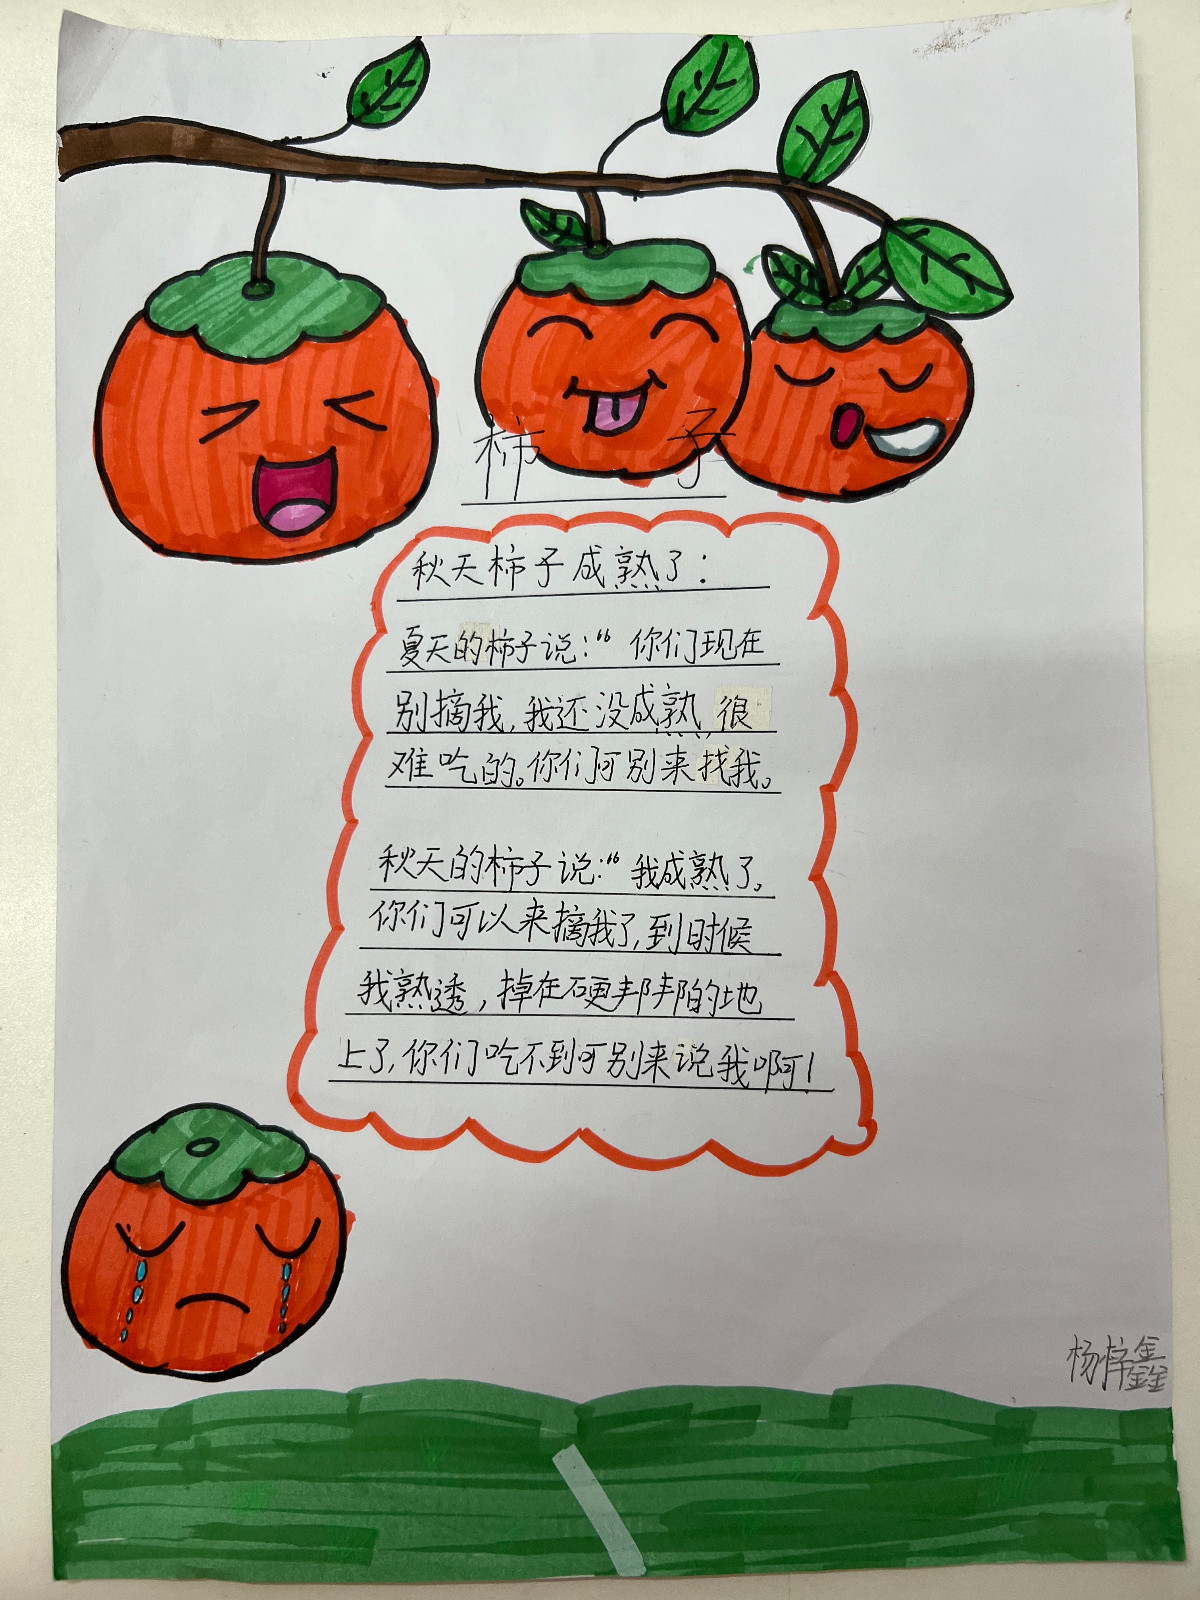 柿子
秋天柿子成熟了：
夏天的柿子说：“你们现在
别摘我，我还没成熟，很
难吃的。你们可别来找我。
秋天的柿子说：“我成熟了。
你们可以来摘我了，到时候
我熟透，掉在硬邦邦的地
上了，你们吃不到可别来说我啊！
杨梓鑫